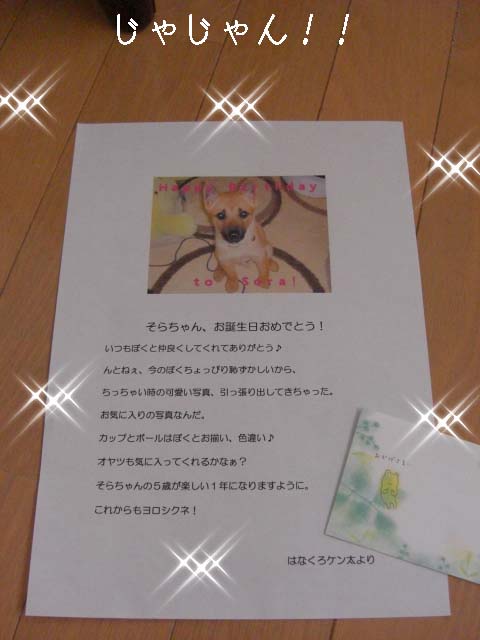 じゃじゃん！！
Happy Birthday
to Sora!
そらちゃん、お誕生日おめでとう！
いつもぼくと仲良くしてくれてありがとう♪
んとねぇ、今のぼくちょっぴり恥ずかしいから、
ちっちゃい時の可愛い写真、引っ張り出してきちゃった。
お気に入りの写真なんだ。
カップとボールはぼくとお揃い、色違い♪
オヤツも気に入ってくれるかなぁ？
そらちゃんの５歳が楽しい１年になりますように。
これからもヨロシクネ！
はなくろケン太より